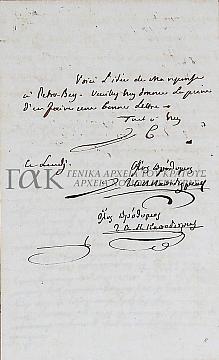 Voici l'idée de ma réponse
à Petro-Bey. Veuillez bien donner la peine
d'en faire une bonne lettre.
Tout à vous
C
Ce Lundi.
ὅλος πρόθυμος
Ι Α Κ Καποδίστριας
ΓΑΚ ΓΕΝΙΚΑ ΑΡΧΕΙΑ ΤΟΥ ΚΡΑΤΟΥΣ
ΑΡΧΕΙΑ
ὅλος πρόθυμος
Ι Α Κ Καποδίστριας